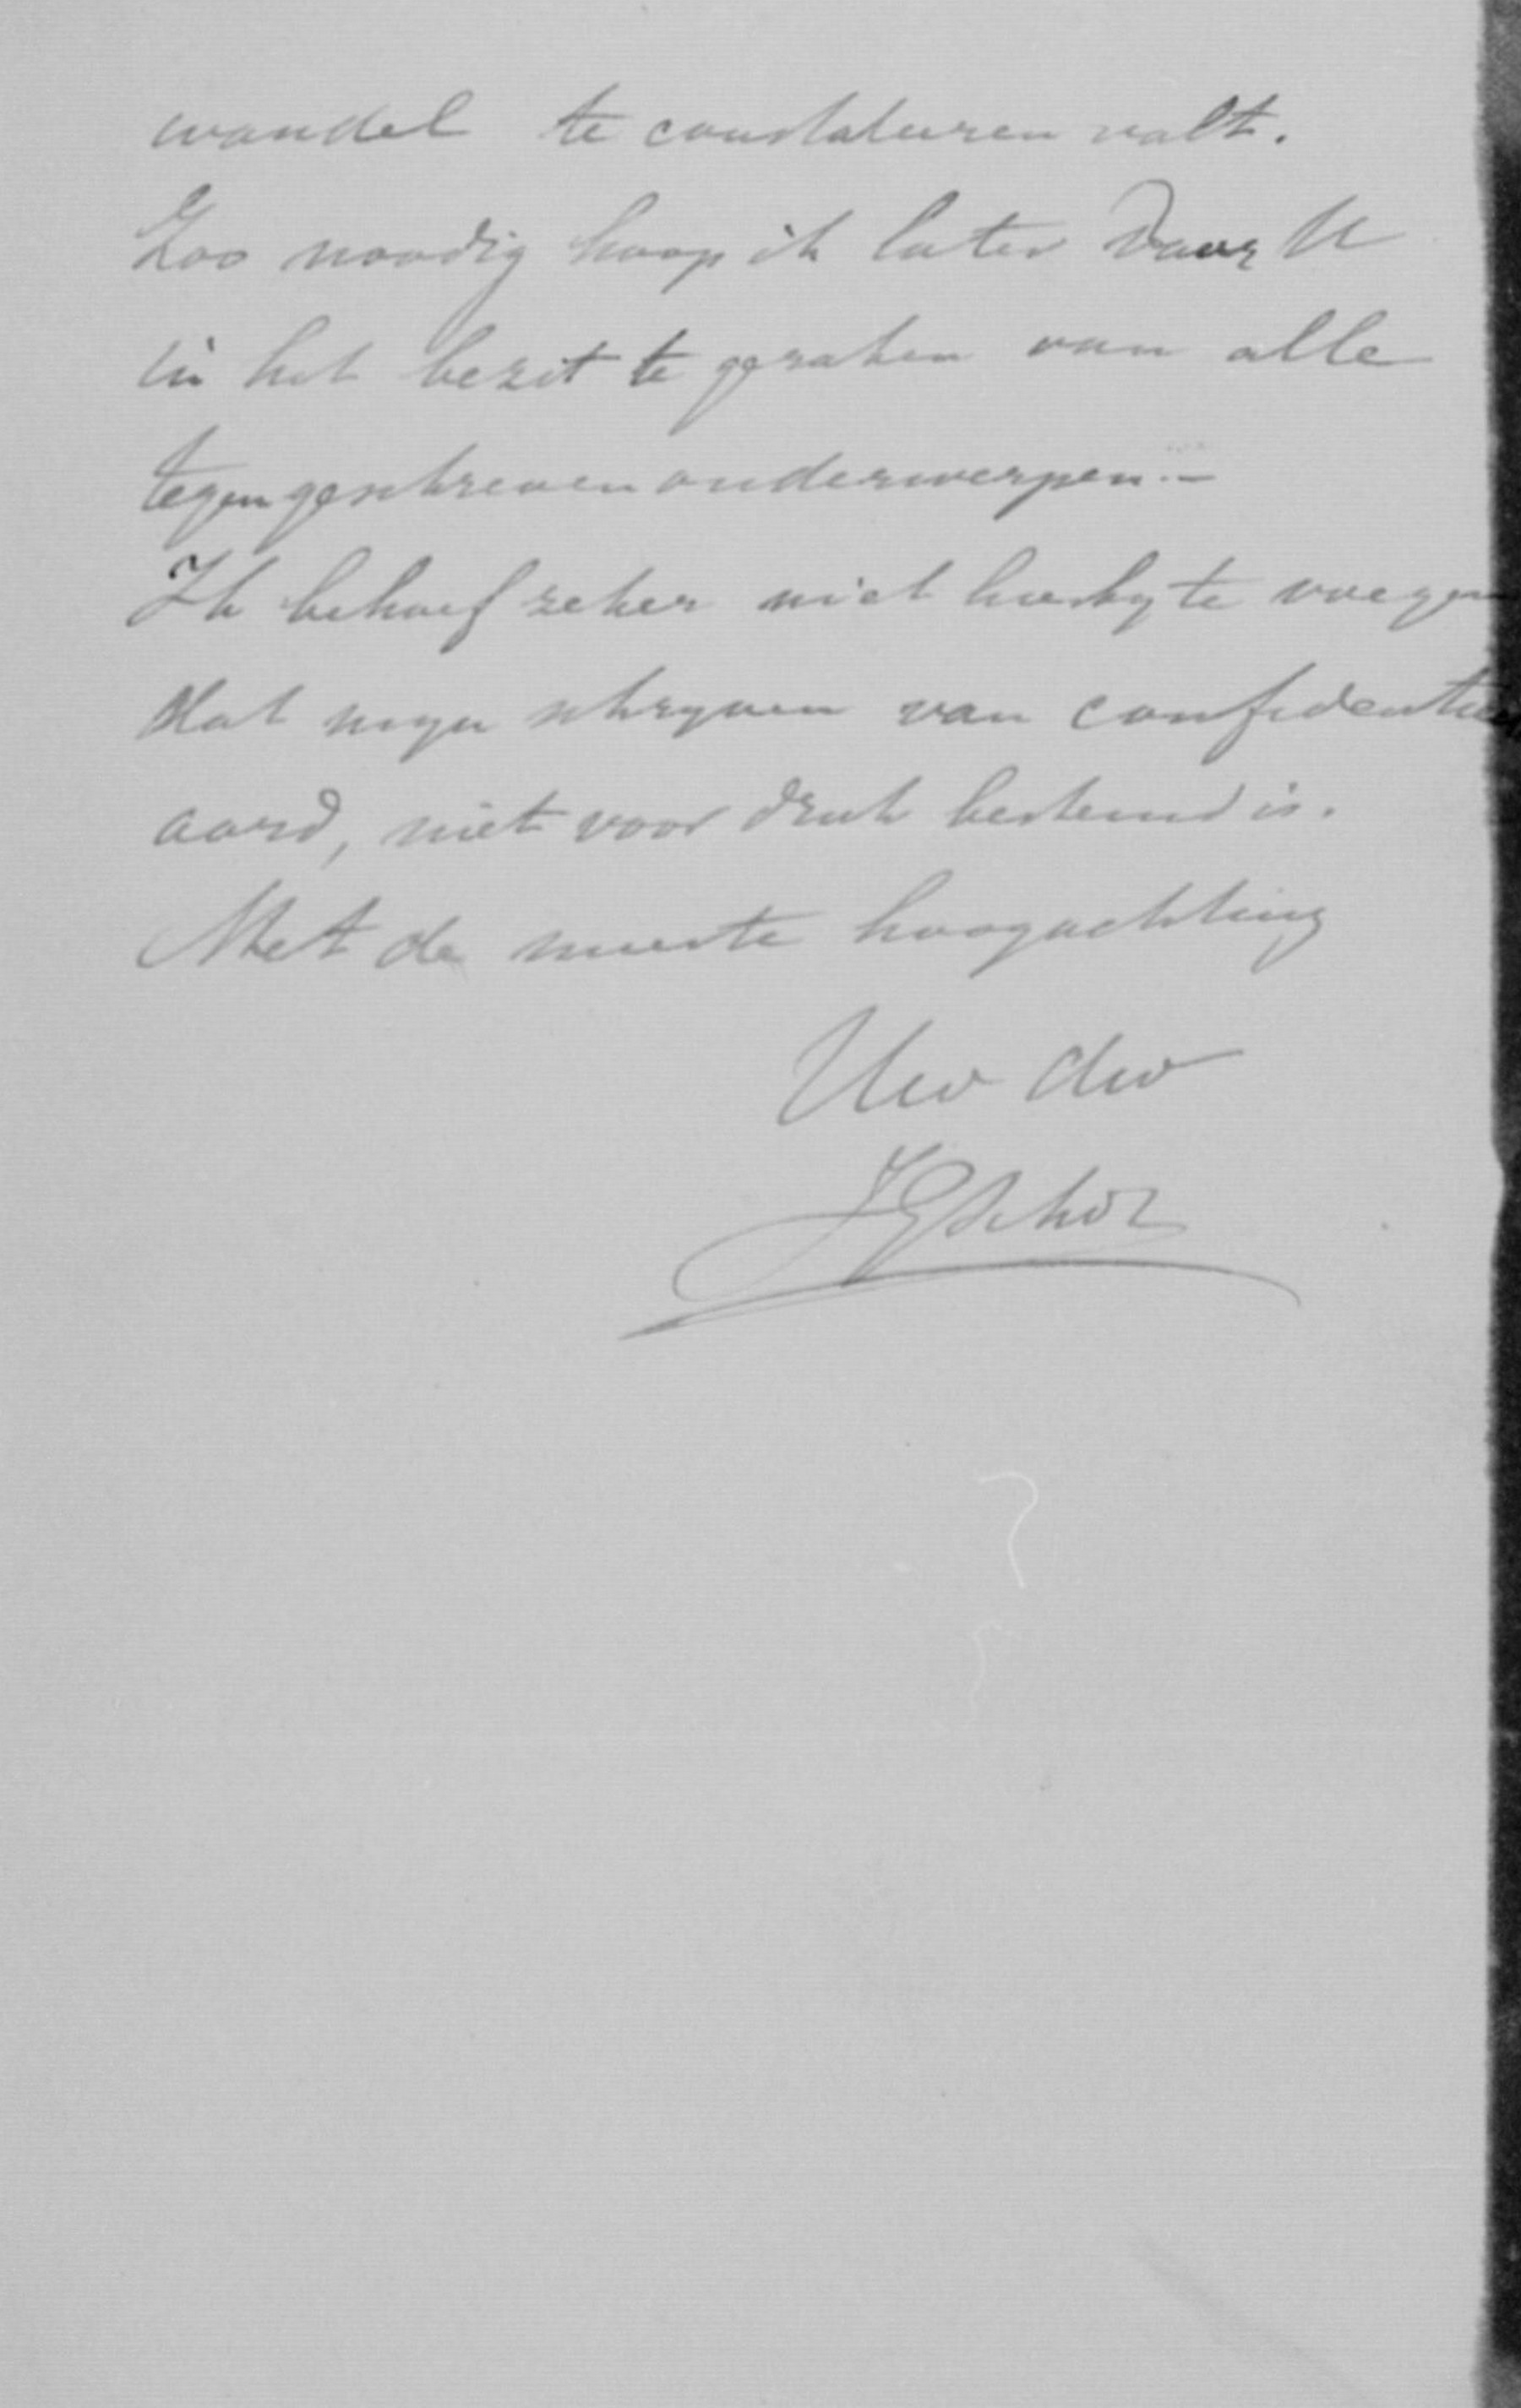 wandel te constateeren valt.
Zoo noodig hoop ik later door U
in het bezit te geraken van alle
tegengeschreven onderwerpen.-
Ik behoef zeker niet hierby te voegen
dat myn schryven van confidentieel
aard, niet voor druk bestemd is.
Met de meeste hoogachting
Uw dw